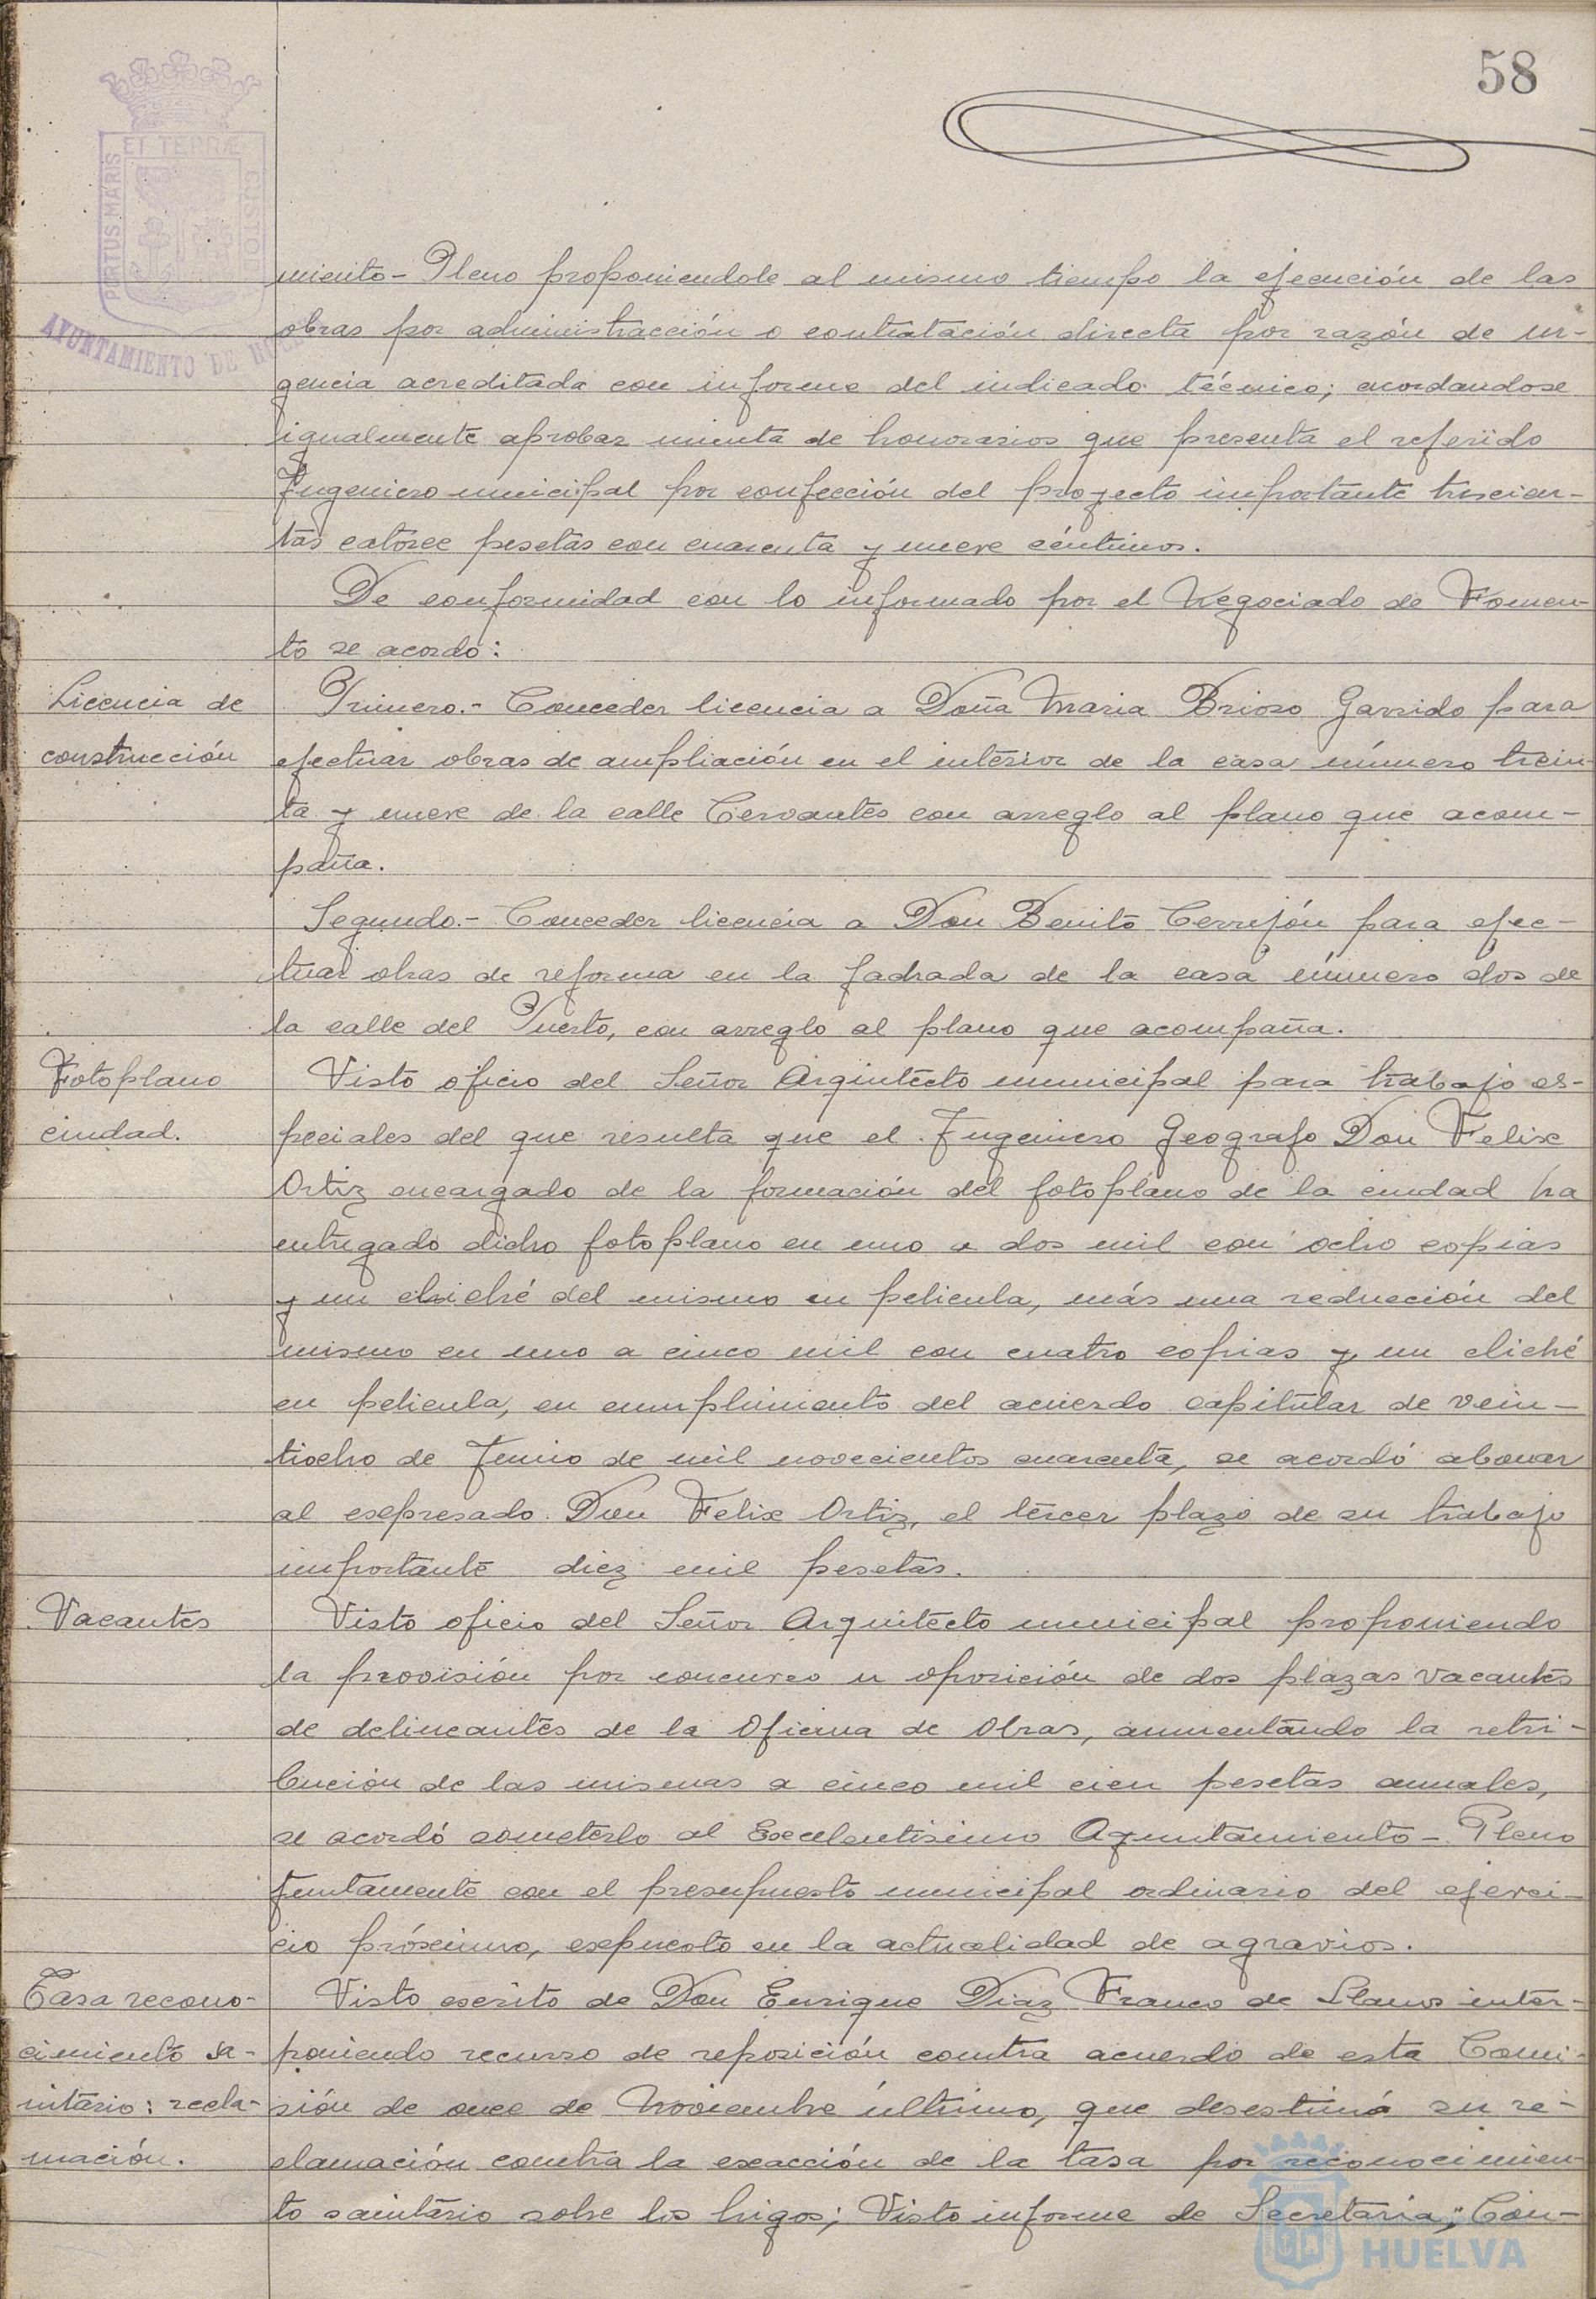 58
PORTUS MARIS ET TERRÆ CUSTODIA
AYUNTAMIENTO DE HUELVA
miento - Pleno proponiendole al mismo tiempo la ejecución de las
obras por administracción o contratación directa por razón de ur-
gencia acreditada con informe del indicado técnico; acordandose
igualmente aprobar minuta de honorarios que presenta el referido
Ingeniero municipal por confección del proyecto importante trescien-
tas catorce pesetas con cuarenta y nueve céntimos.
De conformidad con lo informado por el Negociado de Fomen-
to se acordó:
Licencia de
construcción
Primero.- Conceder licencia a Doña Maria Brioso Garrido para
efectuar obras de ampliación en el interior de la casa número trein-
ta y nueve de la calle Cervantes con arreglo al plano que acom-
paña.
Segundo.- Conceder licencia a Don Benito Cerrejón para efec-
tuar obras de reforma en la fachada de la casa número dos de
la calle del Puerto, con arreglo al plano que acompaña.
Fotoplano
ciudad.
Visto oficio del Señor Arquitecto municipal para trabajo es-
peciales del que resulta que el Ingeniero Geografo Don Felix
Ortiz encargado de la formación del fotoplano de la ciudad ha
entregado dicho fotoplano en uno a dos mil con ocho copias
y un cliché del mismo en pelicula, más una reducción del
mismo en uno a cinco mil con cuatro copias y un cliché
en pelicula, en cumplimiento del acuerdo capitular de vein-
tiocho de Junio de mil novecientos cuarenta, se acordó abonar
al expresado Don Felix Ortiz, el tercer plazo de su trabajo
importante diez mil pesetas.
Vacantes
Visto oficio del Señor Arquitecto municipal proponiendo
la provisión por concurso u oposición de dos plazas vacantes
de delineantes de la Oficina de Obras, aumentando la retri-
bución de las mismas a cinco mil cien pesetas anuales,
se acordó someterlo al Excelentisimo Ayuntamiento - Pleno
juntamente con el presupuesto municipal ordinario del ejerci-
cio próximo, expuesto en la actualidad de agravios.
Tasa recono-
cimiento sa-
nitario: recla-
mación.
Visto escrito de Don Enrique Diaz Franco de Llanos inter-
poniendo recurso de reposición contra acuerdo de esta Comi-
sión de once de Noviembre último, que desestimó su re-
clamación contra la exacción de la tasa por reconocimien-
to sanitario sobre los higos; Visto informe de Secretaria; Con-
HUELVA